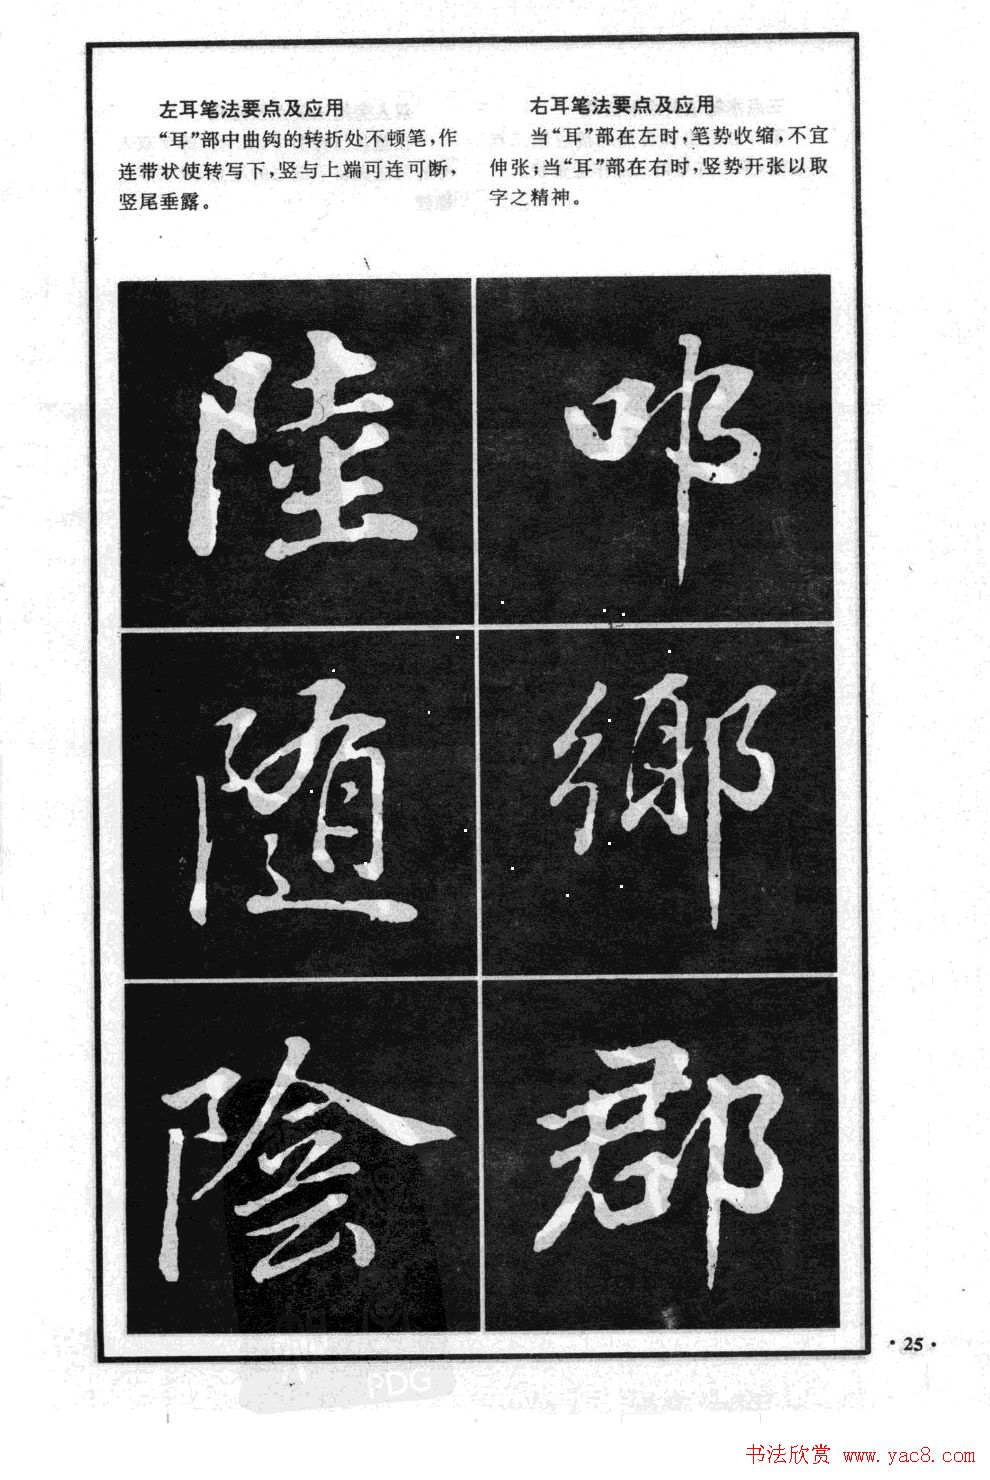 左耳笔法要点及应用
“耳”部中曲钩的转折处不顿笔，作
连带状使转写下，竖与上端可连可断，
竖尾垂露。
右耳笔法要点及应用
当“耳”部在左时，笔势收缩，不宜
伸张；当“耳”部在右时，竖势开张以取
字之精神。
陸
随
陰
叩
鄉
郡
·25·
PDG
书法欣赏 www.yac8.com